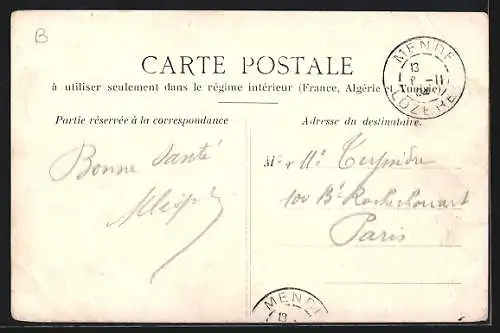 B
CARTE POSTALE
à utiliser seulement dans le régime intérieur (France, Algérie et Tunisie)
Partie réservée à la correspondance
Adresse du destinataire.
MENDE
13
8 -11
04
LOZERE
Bonne santé
Mr & Me
100 Bd Rochechouart
Paris
MENDE
13